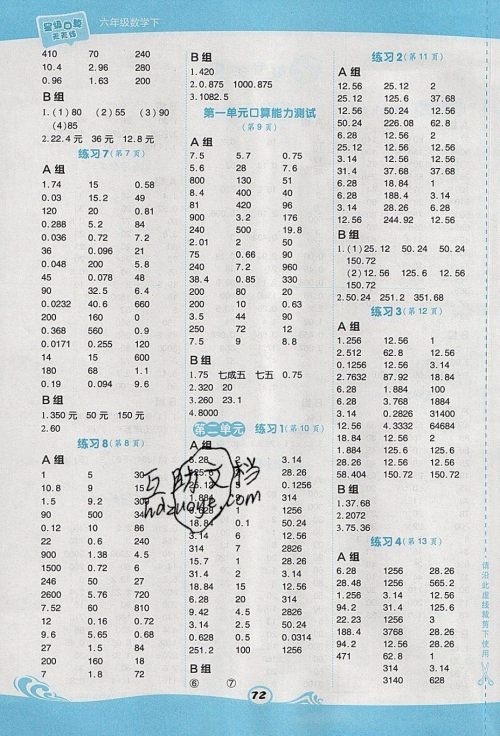 星级口算天天练
六年级数学下
410 70 240
10.4 2.96 280
0.96 1.63 200
B 组
1. (1) 80 (2) 55 (3) 90
(4) 85
2. 22.4 元 36 元 12.8 元
练习 7 (第 7 页)
A 组
1.74 15 0.58
0.03 15.2 49
120 20 0.81
0.288 5.2 84
0.036 0.72 7.2
36 0.096 21
0.048 200 5.8
45 0.078 48
90 32.5 6.4
0.0232 40.6 660
200 160 0
0.368 560 0.9
0.0171 0.255 120
14 15 600
180 68 1.1
0.19 0.094 9.6
B 组
1. 350 元 50 元 150 元
2. 60
练习 8 (第 8 页)
A 组
1 5 30
10.8 9 15
1.5 9.2
90 500
0.12 10 86
22 0.6 240
900 1.38 4.5
1500 0.72 6
246 50 27
2600 5.76 720
7.52 60 810
12 0.16 0.72
9.6 5.65 0.68
27 1.5 84
200 160 18
7 1.8 72
B 组
1. 420
2. 0.875 1000.875
3. 1082.5
第一单元口算能力测试
(第 9 页)
A 组
7.5 5.7 0.75
5.6 28 7.6
800 130 51
8.4 400 40
81 420 96
900 3.2 176
240 500 19.8
2.01 2 50
75 0.66 90
240 7.2 960
38.4 0.85 330
200 80 20
200 10 0.63
3.5 44 90
250 72 12
7.5 9 8.8
B 组
1. 75 七成五 七五 0.75
2. 320 20
3. 260 23.1
4. 8000
第二单元 练习 1 (第 10 页)
A 组
6.28 2 3.14
28.26
25.12 0.1256
1.884 314
1 1256
18.84 0.1 50.24
3.14 6 12.56
314 7 2826
15.7 1 28.26
31.4 2 3.14
18.84 15 12.56
6.28 20 314
9.42 4.5 2826
3.14 2.5 50.24
0.628 0.5 0.0314
251.2 100 1256
B 组
⑥ ⑦
练习 2 (第 11 页)
A 组
12.56 25.12 2
25.12 125.6 37.68
12.56 50.24 12.56
50.24 226.08 62.8
6.28 12.56 2
25.12 314 12.56
3.14 12.56 12.56
31.4 37.68 37.68
6.28 18.84 1
6.28 188.4 3.14
3.14 28.26 6.28
12.56 244.92 12.56
B 组
1. (1) 25.12 50.24 50.24
150.72
(2) 12.56 125.6 12.56
150.72
2. 50.24 251.2 351.68
练习 3 (第 12 页)
A 组
1.256 12.56 1
2.512 62.8 12.56
0.1256 12.56 12.56
2.7632 87.92 18.84
6.28 1.884 100
6.28 3.768 1884
3.14 0.2826 31400
12.56 4.3332 64684
18.84 12.56 2
1.884 125.6 125.6
28.26 12.56 12.56
58.404 150.72 150.72
B 组
1. 37.68
2. 2072
3. 75.36
练习 4 (第 13 页)
A 组
6.28 1256 28.26
28.48 1256 565.2
1.256 3.14 12.56
94.2 31.4 125.6
22.23 1256 3
188.4 3768 28.26
94.2 12.56 28.26
471 62.8 1
314 3.14
3140 628
请沿此虚线裁剪下使用
72
互助文档
hdzuoye.com